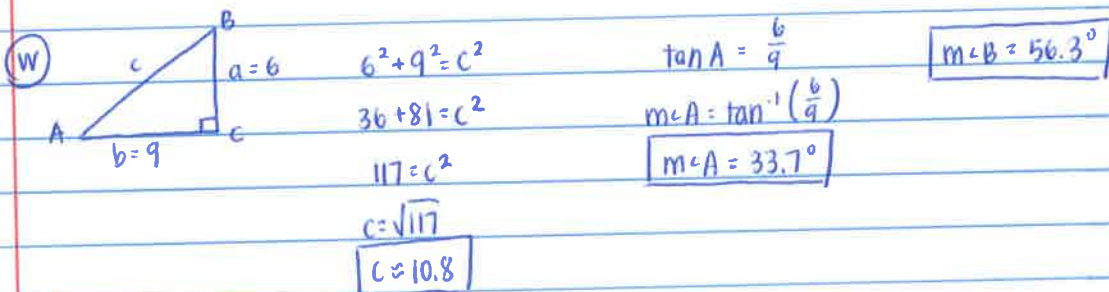 W
B
c
a = 6
A
C
b = 9
6² + 9² = c²
36 + 81 = c²
117 = c²
c = √117
c ≈ 10.8
tan A = 6/9
m∠A = tan⁻¹(6/9)
m∠A = 33.7°
m∠B = 56.3°